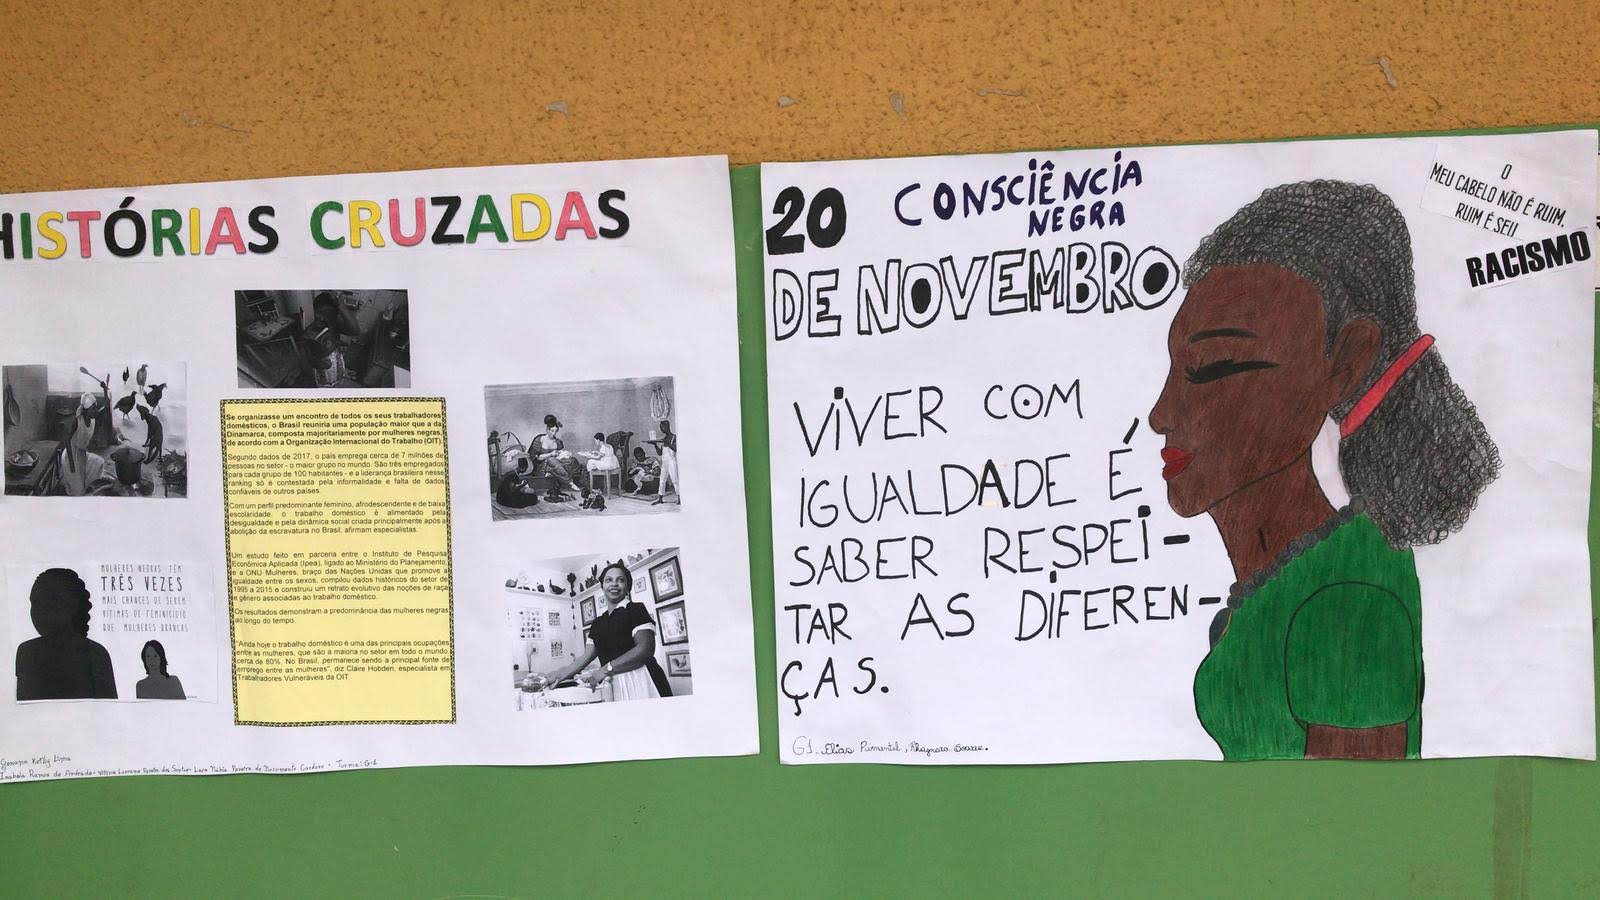 HISTÓRIAS CRUZADAS
Se organizasse um encontro de todos os seus trabalhadores
domésticos, o Brasil reuniria uma população maior que a da
Dinamarca, composta majoritariamente por mulheres negras,
de acordo com a Organização Internacional do Trabalho (OIT).
Segundo dados de 2017, o país emprega cerca de 7 milhões de
pessoas no setor - o maior grupo no mundo. São três empregados
para cada grupo de 100 habitantes - e a liderança brasileira nesse
ranking só é contestada pela informalidade e falta de dados
confiáveis de outros países.
Com um perfil predominante feminino, afrodescendente e de baixa
escolaridade, o trabalho doméstico é alimentado pela
desigualdade e pela dinâmica social criada principalmente após a
abolição da escravatura no Brasil, afirmam especialistas.
Um estudo feito em parceria entre o Instituto de Pesquisa
Econômica Aplicada (Ipea), ligado ao Ministério do Planejamento,
e a ONU Mulheres, braço das Nações Unidas que promove a
igualdade entre os sexos, compilou dados históricos do setor de
1995 a 2015 e construiu um retrato evolutivo das noções de raça
e gênero associadas ao trabalho doméstico.
Os resultados demonstram a predominância das mulheres negras
ao longo do tempo.
"Ainda hoje o trabalho doméstico é uma das principais ocupações
entre as mulheres, que são a maioria no setor em todo o mundo,
cerca de 80%. No Brasil, permanece sendo a principal fonte de
emprego entre as mulheres", diz Claire Hobden, especialista em
Trabalhadores Vulneráveis da OIT.
MULHERES NEGRAS TÊM
TRÊS VEZES
MAIS CHANCES DE SEREM
VÍTIMAS DE FEMINICÍDIO
QUE MULHERES BRANCAS
Geovana Ketlly Lima
Isabela Ramos de Andrade - Vitória Lorrane Pereira dos Santos - Lara Nubia Pereira do Nascimento Cardoso - Turma: G-1
20 CONSCIÊNCIA
NEGRA
DE NOVEMBRO
VIVER COM
IGUALDADE É
SABER RESPEI-
TAR AS DIFEREN-
ÇAS.
G1. Elias Pimentel, Rhaynara Soares.
O
MEU CABELO NÃO É RUIM.
RUIM É SEU
RACISMO